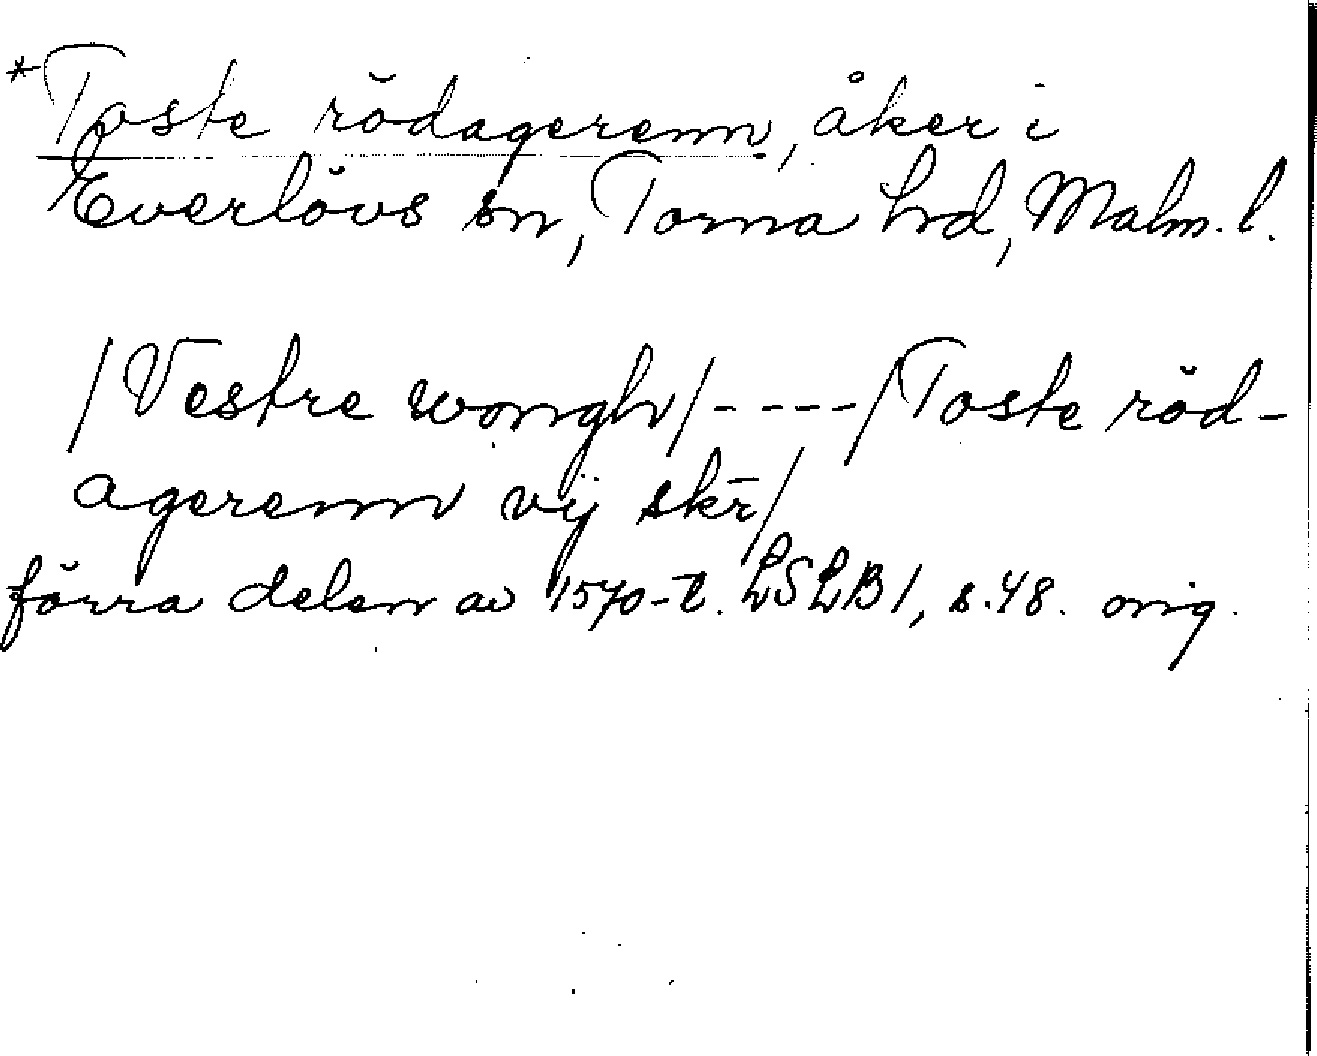 *Toste rödagerenn, åker i
Everlövs sn, Torna hrd, Malm. l.
/Vestre wongh/----/Toste röd-
agerenn vij skr/
förra delen av 1570-t. LSLB1, s.48. orig.